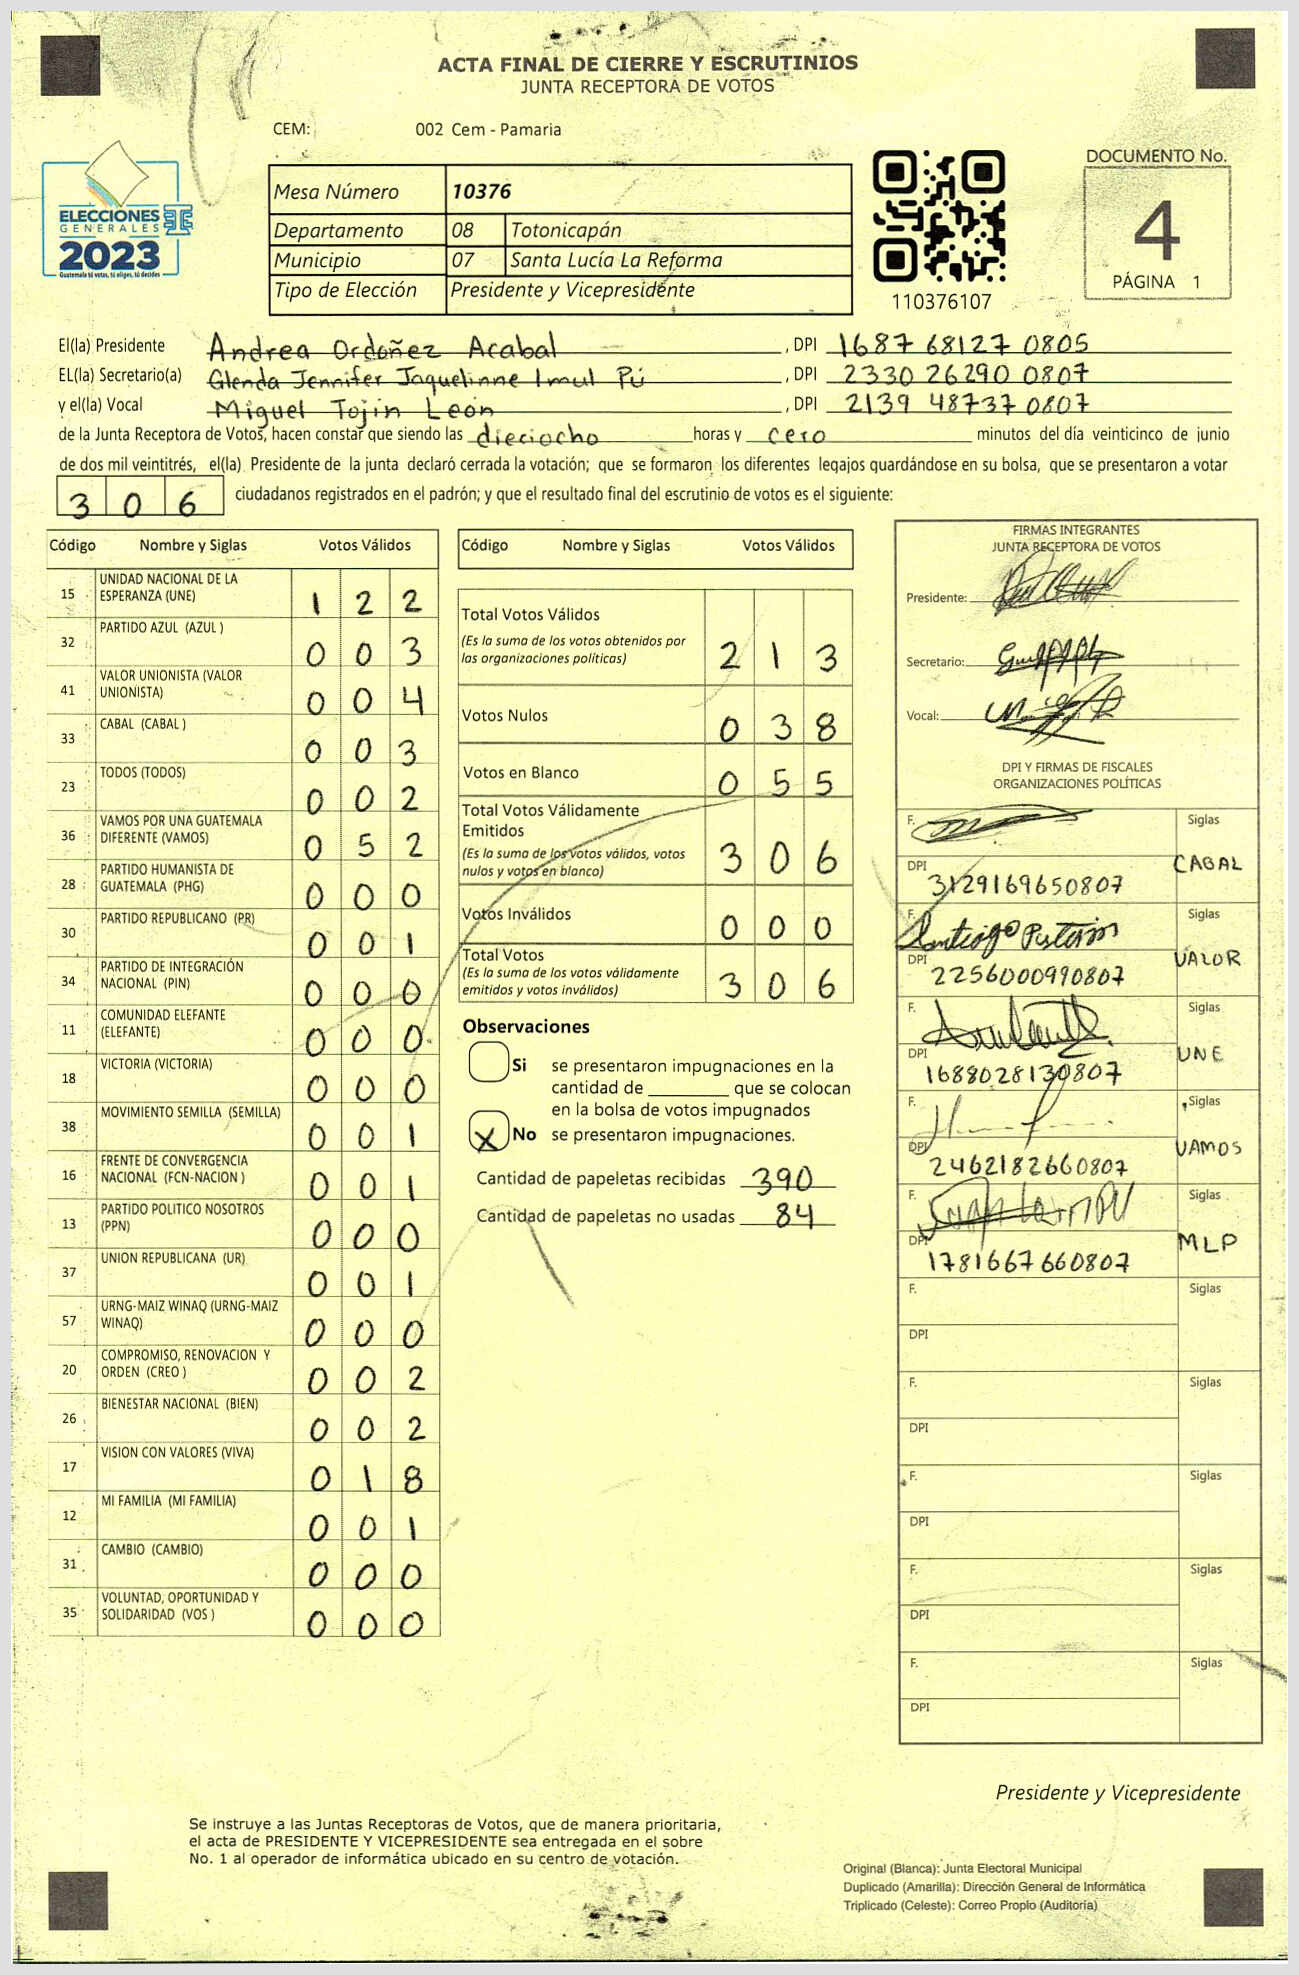 ACTA FINAL DE CIERRE Y ESCRUTINIOS
JUNTA RECEPTORA DE VOTOS
CEM: 002 Cem - Pamaria
ELECCIONES
GENERALES
2023
Guatemala tú votas, tú eliges, tú decides
Mesa Número 10376
Departamento 08 Totonicapán
Municipio 07 Santa Lucía La Reforma
Tipo de Elección Presidente y Vicepresidente
110376107
DOCUMENTO No.
4
PÁGINA 1
El(la) Presidente Andrea Ordoñez Acabal , DPI 1687 68127 0805
EL(la) Secretario(a) Glenda Jennifer Jaquelinne Imul Pú , DPI 2330 26290 0807
y el(la) Vocal Miguel Tojín León , DPI 2139 48737 0807
de la Junta Receptora de Votos, hacen constar que siendo las dieciocho horas y cero minutos del día veinticinco de junio
de dos mil veintitrés, el(la) Presidente de la junta declaró cerrada la votación; que se formaron los diferentes legajos guardándose en su bolsa, que se presentaron a votar
306 ciudadanos registrados en el padrón; y que el resultado final del escrutinio de votos es el siguiente:
Código Nombre y Siglas Votos Válidos
15 UNIDAD NACIONAL DE LA
ESPERANZA (UNE) 1 2 2
32 PARTIDO AZUL (AZUL ) 0 0 3
41 VALOR UNIONISTA (VALOR
UNIONISTA) 0 0 4
33 CABAL (CABAL ) 0 0 3
23 TODOS (TODOS) 0 0 2
36 VAMOS POR UNA GUATEMALA
DIFERENTE (VAMOS) 0 5 2
28 PARTIDO HUMANISTA DE
GUATEMALA (PHG) 0 0 0
30 PARTIDO REPUBLICANO (PR) 0 0 1
34 PARTIDO DE INTEGRACIÓN
NACIONAL (PIN) 0 0 0
11 COMUNIDAD ELEFANTE
(ELEFANTE) 0 0 0
18 VICTORIA (VICTORIA) 0 0 0
38 MOVIMIENTO SEMILLA (SEMILLA) 0 0 1
16 FRENTE DE CONVERGENCIA
NACIONAL (FCN-NACION ) 0 0 1
13 PARTIDO POLITICO NOSOTROS
(PPN) 0 0 0
37 UNION REPUBLICANA (UR) 0 0 1
57 URNG-MAIZ WINAQ (URNG-MAIZ
WINAQ) 0 0 0
20 COMPROMISO, RENOVACION Y
ORDEN (CREO ) 0 0 2
26 BIENESTAR NACIONAL (BIEN) 0 0 2
17 VISION CON VALORES (VIVA) 0 1 8
12 MI FAMILIA (MI FAMILIA) 0 0 1
31 CAMBIO (CAMBIO) 0 0 0
35 VOLUNTAD, OPORTUNIDAD Y
SOLIDARIDAD (VOS ) 0 0 0
Código Nombre y Siglas Votos Válidos
Total Votos Válidos
(Es la suma de los votos obtenidos por
las organizaciones políticas) 2 1 3
Votos Nulos 0 3 8
Votos en Blanco 0 5 5
Total Votos Válidamente
Emitidos
(Es la suma de los votos válidos, votos
nulos y votos en blanco) 3 0 6
Votos Inválidos 0 0 0
Total Votos
(Es la suma de los votos válidamente
emitidos y votos inválidos) 3 0 6
Observaciones
Si se presentaron impugnaciones en la
cantidad de ________ que se colocan
en la bolsa de votos impugnados
X No se presentaron impugnaciones.
Cantidad de papeletas recibidas 390
Cantidad de papeletas no usadas 84
FIRMAS INTEGRANTES
JUNTA RECEPTORA DE VOTOS
Presidente:
Secretario:
Vocal:
DPI Y FIRMAS DE FISCALES
ORGANIZACIONES POLÍTICAS
F. Siglas
DPI 3129169650807 CABAL
F. Siglas
DPI 2256000990807 VALOR
F. Siglas
DPI 1688028130807 UNE
F. Siglas
DPI 2462182660807 VAMOS
F. Siglas
DPI 1781667660807 MLP
F. Siglas
DPI
F. Siglas
DPI
F. Siglas
DPI
F. Siglas
DPI
F. Siglas
DPI
Presidente y Vicepresidente
Se instruye a las Juntas Receptoras de Votos, que de manera prioritaria,
el acta de PRESIDENTE Y VICEPRESIDENTE sea entregada en el sobre
No. 1 al operador de informática ubicado en su centro de votación.
Original (Blanca): Junta Electoral Municipal
Duplicado (Amarilla): Dirección General de Informática
Triplicado (Celeste): Correo Propio (Auditoría)